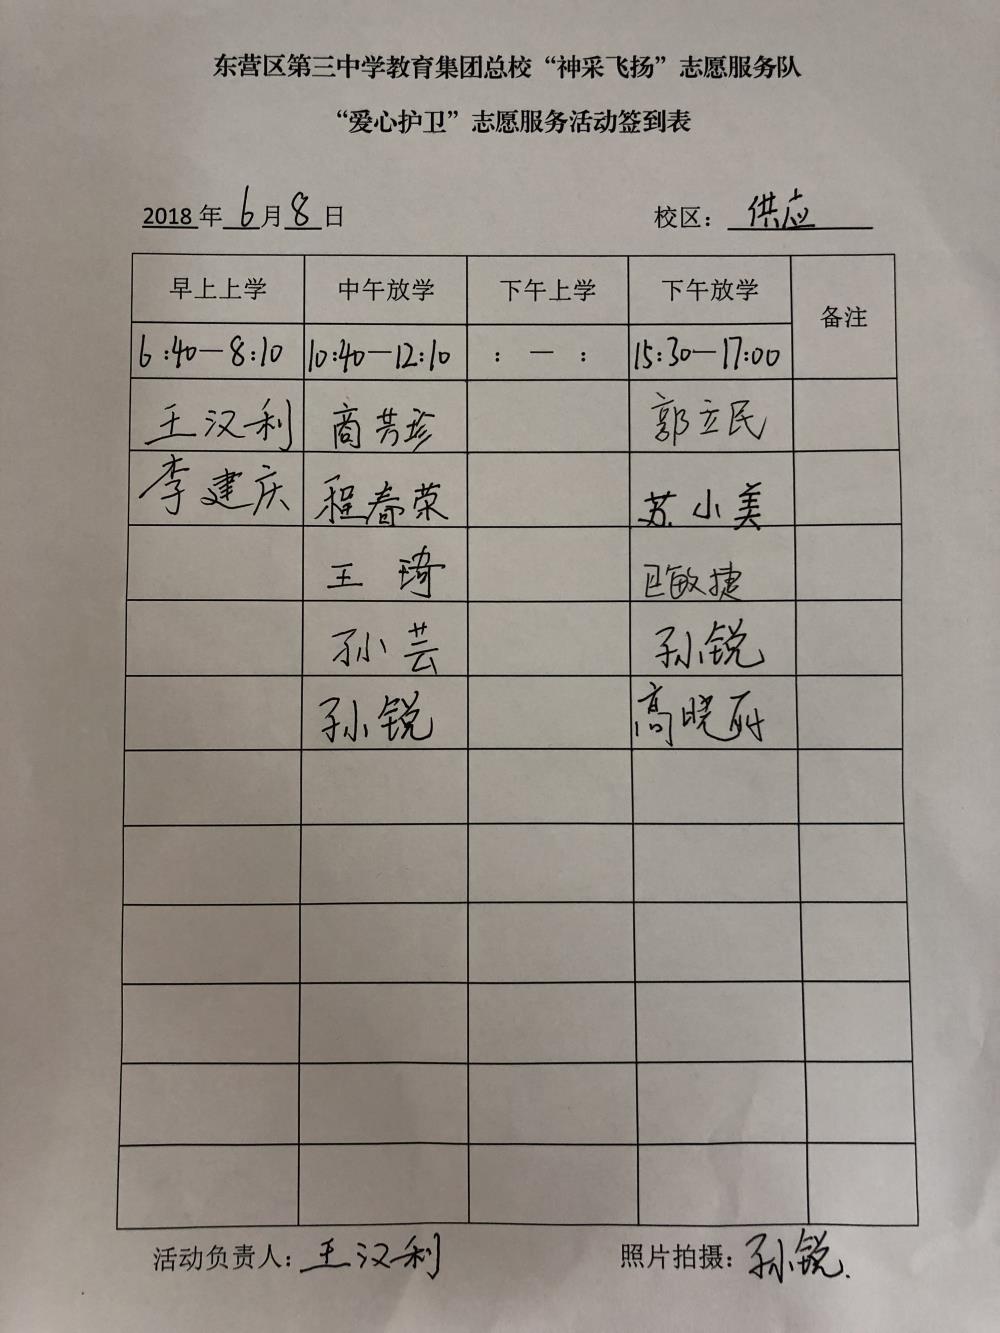 东营区第三中学教育集团总校“神采飞扬”志愿服务队
“爱心护卫”志愿服务活动签到表
2018年 6月 8日 校区：供应
早上上学 中午放学 下午上学 下午放学 备注
6:40—8:10 10:40—12:10 : — : 15:30—17:00
王汉利 商芳珍 郭立民
李建庆 程春荣 苏小美
王琦 敏捷
孙芸 孙锐
孙锐 高晓丽
活动负责人：王汉利 照片拍摄：孙锐.